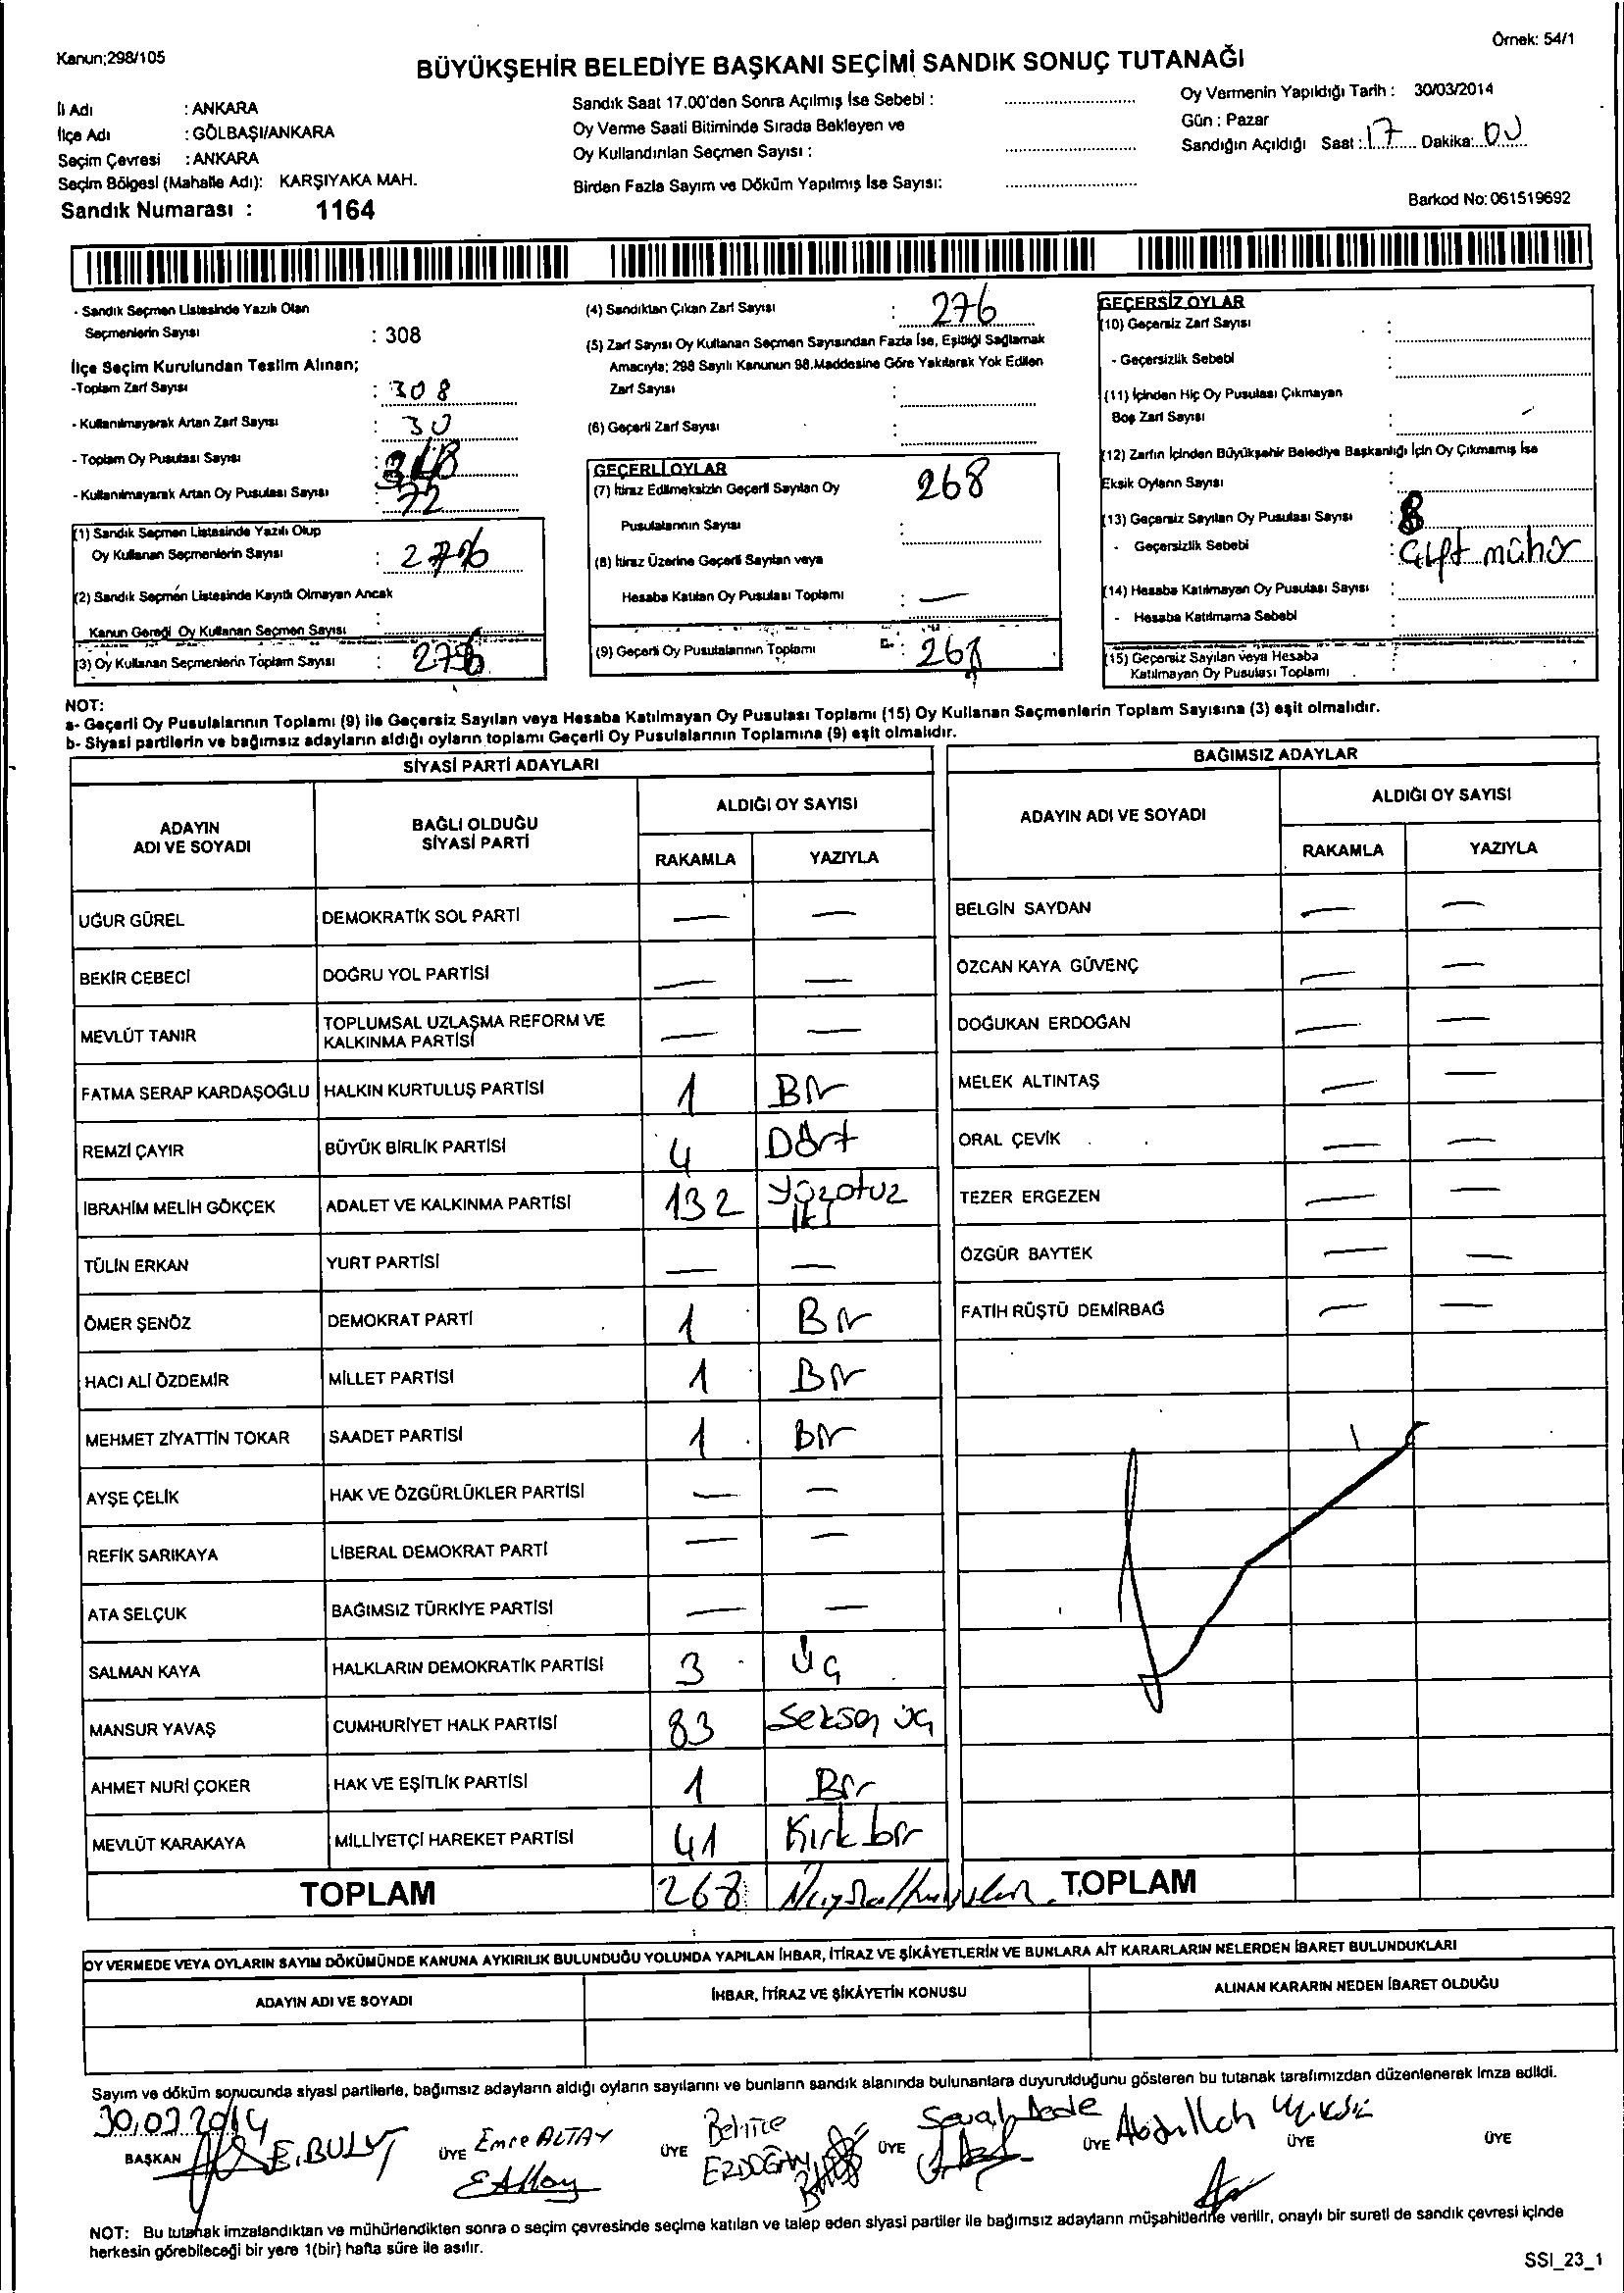 Kanun;298/105
Örnek: 54/1
BÜYÜKŞEHİR BELEDİYE BAŞKANI SEÇİMİ SANDIK SONUÇ TUTANAĞI
İl Adı : ANKARA
İlçe Adı : GÖLBAŞI/ANKARA
Seçim Çevresi : ANKARA
Seçim Bölgesi (Mahalle Adı): KARŞIYAKA MAH.
Sandık Numarası : 1164
Sandık Saat 17.00'den Sonra Açılmış İse Sebebi :
Oy Verme Saati Bitiminde Sırada Bekleyen ve
Oy Kullandırılan Seçmen Sayısı :
Birden Fazla Sayım ve Döküm Yapılmış İse Sayısı:
Oy Vermenin Yapıldığı Tarih : 30/03/2014
Gün : Pazar
Sandığın Açıldığı Saat : 17 Dakika: 00
Barkod No: 061519692
- Sandık Seçmen Listesinde Yazılı Olan
Seçmenlerin Sayısı : 308
İlçe Seçim Kurulundan Teslim Alınan;
-Toplam Zarf Sayısı : 308
- Kullanılmayarak Artan Zarf Sayısı : 30
- Toplam Oy Pusulası Sayısı :
- Kullanılmayarak Artan Oy Pusulası Sayısı :
(1) Sandık Seçmen Listesinde Yazılı Olup
Oy Kullanan Seçmenlerin Sayısı : 276
(2) Sandık Seçmen Listesinde Kayıtlı Olmayan Ancak
Kanun Gereği Oy Kullanan Seçmen Sayısı :
(3) Oy Kullanan Seçmenlerin Toplam Sayısı : 276
(4) Sandıktan Çıkan Zarf Sayısı : 276
(5) Zarf Sayısı Oy Kullanan Seçmen Sayısından Fazla İse, Eşitliği Sağlamak
Amacıyla; 298 Sayılı Kanunun 98.Maddesine Göre Yakılarak Yok Edilen
Zarf Sayısı :
(6) Geçerli Zarf Sayısı :
GEÇERLİ OYLAR
(7) İtiraz Edilmeksizin Geçerli Sayılan Oy 268
Pusulalarının Sayısı :
(8) İtiraz Üzerine Geçerli Sayılan veya
Hesaba Katılan Oy Pusulası Toplamı : —
(9) Geçerli Oy Pusulalarının Toplamı : 268
GEÇERSİZ OYLAR
(10) Geçersiz Zarf Sayısı :
- Geçersizlik Sebebi :
(11) İçinden Hiç Oy Pusulası Çıkmayan
Boş Zarf Sayısı : —
(12) Zarfın İçinden Büyükşehir Belediye Başkanlığı İçin Oy Çıkmamış İse
Eksik Oyların Sayısı :
(13) Geçersiz Sayılan Oy Pusulası Sayısı : 8
- Geçersizlik Sebebi : Çift mühür
(14) Hesaba Katılmayan Oy Pusulası Sayısı :
- Hesaba Katılmama Sebebi :
(15) Geçersiz Sayılan veya Hesaba
Katılmayan Oy Pusulası Toplamı :
NOT:
a- Geçerli Oy Pusulalarının Toplamı (9) ile Geçersiz Sayılan veya Hesaba Katılmayan Oy Pusulası Toplamı (15) Oy Kullanan Seçmenlerin Toplam Sayısına (3) eşit olmalıdır.
b- Siyasi partilerin ve bağımsız adayların aldığı oyların toplamı Geçerli Oy Pusulalarının Toplamına (9) eşit olmalıdır.
SİYASİ PARTİ ADAYLARI
ADAYIN ADI VE SOYADI
BAĞLI OLDUĞU SİYASİ PARTİ
ALDIĞI OY SAYISI
RAKAMLA YAZIYLA
UĞUR GÜREL DEMOKRATİK SOL PARTİ — —
BEKİR CEBECİ DOĞRU YOL PARTİSİ — —
MEVLÜT TANIR TOPLUMSAL UZLAŞMA REFORM VE KALKINMA PARTİSİ — —
FATMA SERAP KARDAŞOĞLU HALKIN KURTULUŞ PARTİSİ 1 Bir
REMZİ ÇAYIR BÜYÜK BİRLİK PARTİSİ 4 Dört
İBRAHİM MELİH GÖKÇEK ADALET VE KALKINMA PARTİSİ 132 yüzotuz iki
TÜLİN ERKAN YURT PARTİSİ — —
ÖMER ŞENÖZ DEMOKRAT PARTİ 1 Bir
HACI ALİ ÖZDEMİR MİLLET PARTİSİ 1 Bir
MEHMET ZİYATTİN TOKAR SAADET PARTİSİ 1 Bir
AYŞE ÇELİK HAK VE ÖZGÜRLÜKLER PARTİSİ — —
REFİK SARIKAYA LİBERAL DEMOKRAT PARTİ — —
ATA SELÇUK BAĞIMSIZ TÜRKİYE PARTİSİ — —
SALMAN KAYA HALKLARIN DEMOKRATİK PARTİSİ 3 Üç
MANSUR YAVAŞ CUMHURİYET HALK PARTİSİ 83 Seksen üç
AHMET NURİ ÇOKER HAK VE EŞİTLİK PARTİSİ 1 Bir
MEVLÜT KARAKAYA MİLLİYETÇİ HAREKET PARTİSİ 41 Kırk bir
TOPLAM 268
BAĞIMSIZ ADAYLAR
ADAYIN ADI VE SOYADI
ALDIĞI OY SAYISI
RAKAMLA YAZIYLA
BELGİN SAYDAN — —
ÖZCAN KAYA GÜVENÇ — —
DOĞUKAN ERDOĞAN — —
MELEK ALTINTAŞ — —
ORAL ÇEVİK — —
TEZER ERGEZEN — —
ÖZGÜR BAYTEK — —
FATİH RÜŞTÜ DEMİRBAĞ — —
TOPLAM
OY VERMEDE VEYA OYLARIN SAYIM DÖKÜMÜNDE KANUNA AYKIRILIK BULUNDUĞU YOLUNDA YAPILAN İHBAR, İTİRAZ VE ŞİKÂYETLERİN VE BUNLARA AİT KARARLARIN NELERDEN İBARET BULUNDUKLARI
ADAYIN ADI VE SOYADI İHBAR, İTİRAZ VE ŞİKÂYETİN KONUSU ALINAN KARARIN NEDEN İBARET OLDUĞU
Sayım ve döküm sonucunda siyasi partilerle, bağımsız adayların aldığı oyların sayılarını ve bunların sandık alanında bulunanlara duyurulduğunu gösteren bu tutanak tarafımızdan düzenlenerek imza edildi.
30.03.2014
BAŞKAN E. BULUT ÜYE Emre ALTAY ÜYE Behice ERDOĞAN ÜYE Dede ÜYE Abdullah ÜYE ÜYE
EAltay
NOT: Bu tutanak imzalandıktan ve mühürlendikten sonra o seçim çevresinde seçime katılan ve talep eden siyasi partiler ile bağımsız adayların müşahitlerine verilir, onaylı bir sureti de sandık çevresi içinde
herkesin görebileceği bir yere 1(bir) hafta süre ile asılır.
SSI_23_1